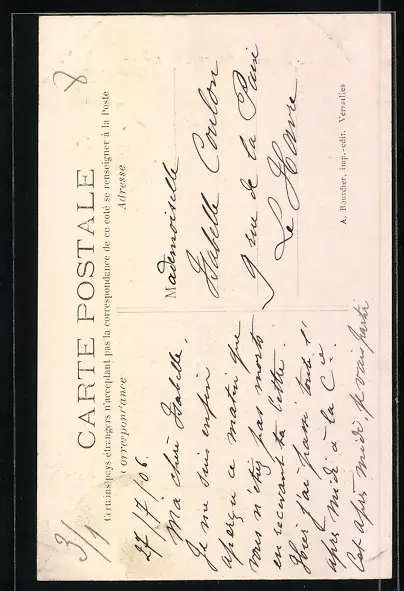 3/1
8
CARTE POSTALE
Certains pays étrangers n'acceptant pas la correspondance de ce coté se renseigner à la Poste
Correspondance
Adresse
27/7/06.
Ma chère Isabelle,
Je me suis enfin
aperçu ce matin que
vous n'étiez pas morts
en recevant ta lettre.
Hier j'ai passé toute l'
après midi à la Cie.
Cet après midi je vais partir
Mademoiselle
Isabelle Coulon
9 rue de la Paix
Le Havre
A. Bourdier, imp.-edit. Versailles